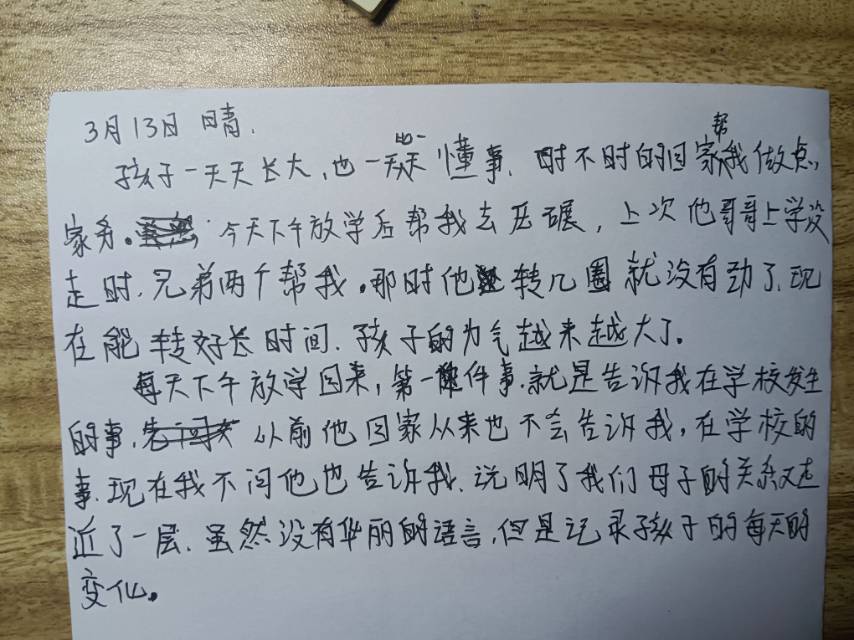 3月13日 晴.
孩子一天天长大,也一天比一天懂事.时不时的回家帮我做点
家务。今天下午放学后帮我去压碾,上次他哥哥上学没
走时.兄弟两个帮我。那时他转几圈就没有劲了.现
在能转好长时间.孩子的力气越来越大了。
每天下午放学回来,第一件事.就是告诉我在学校发生
的事.以前他回家从来也不会告诉我,在学校的
事.现在我不问他也告诉我.说明了我们母子的关系又走
近了一层.虽然没有华丽的语言,但是记录孩子的每天的
变化。